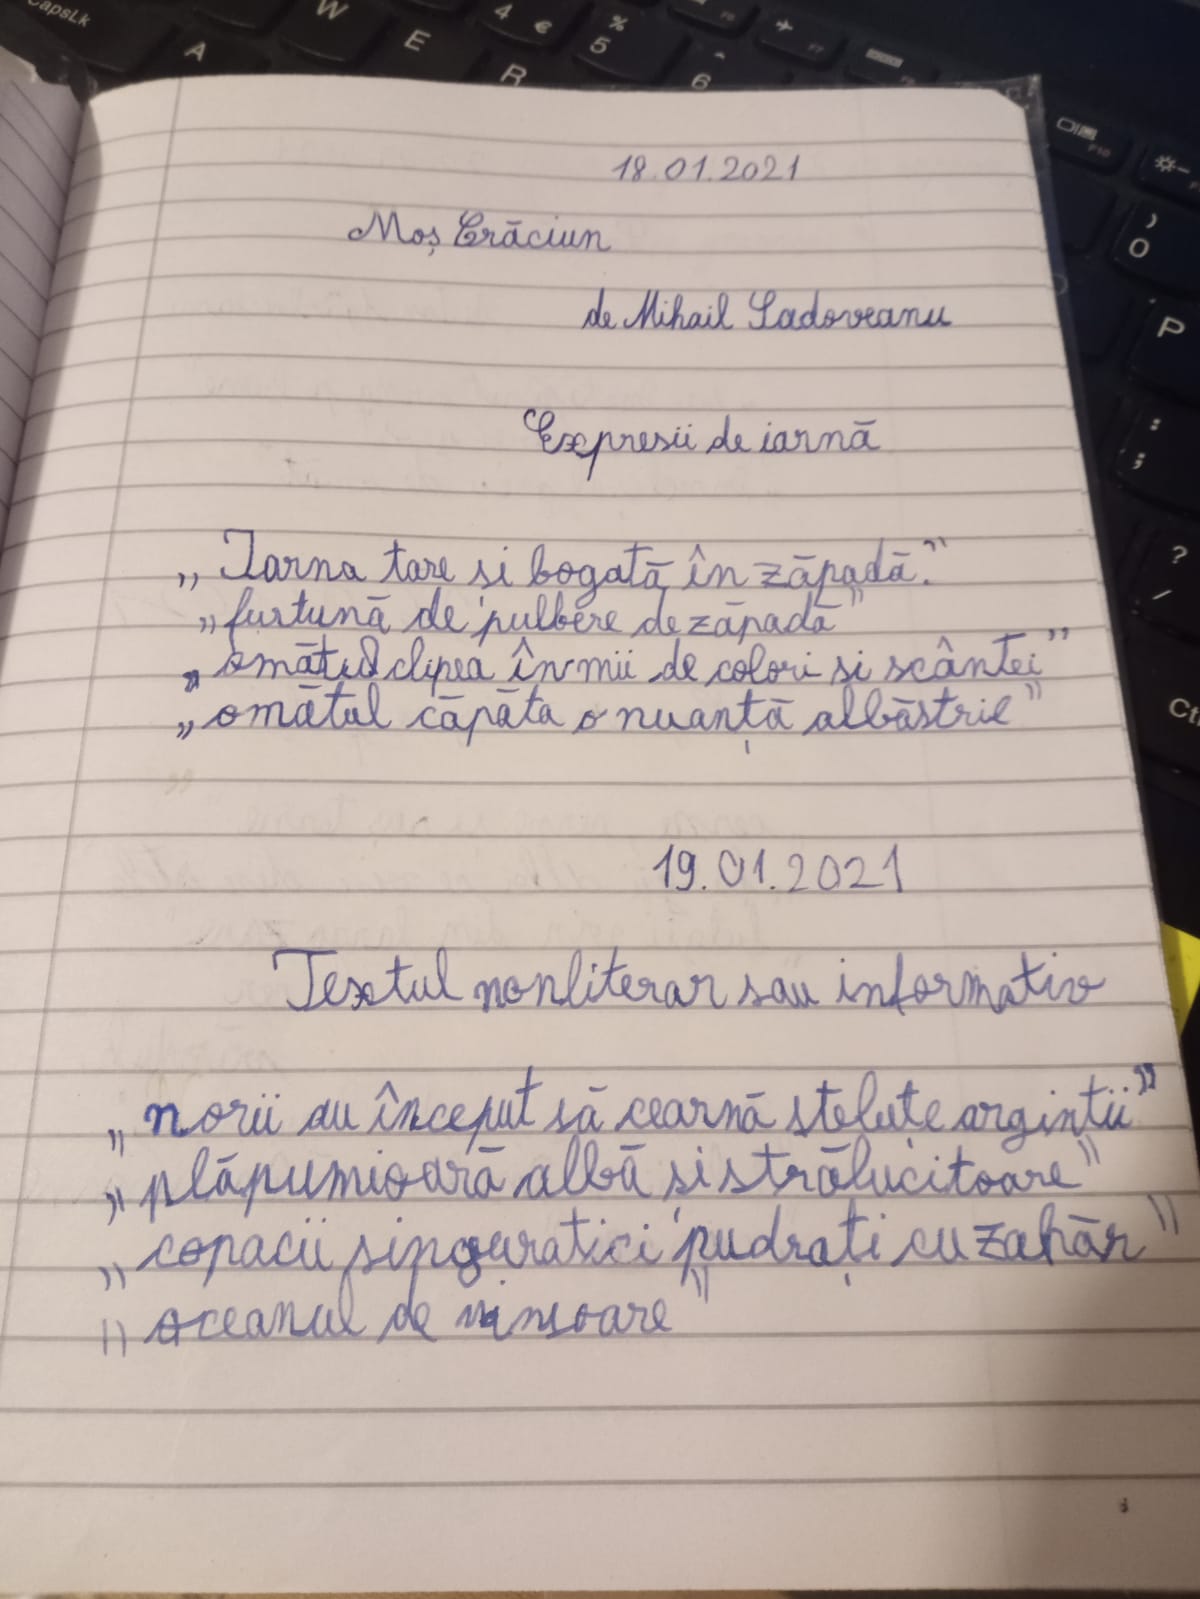 18.01.2021
Moș Crăciun
de Mihail Sadoveanu
Expresii de iarnă
„Iarna tare și bogată în zăpadă.”
„furtună de pulbere de zăpadă”
„omătul clipea în mii de colori și scântei”
„omătul căpăta o nuanță albăstrie”
19.01.2021
Textul nonliterar sau informativ
„norii au început să cearnă steluțe argintii.”
„plăpumioară albă și strălucitoare”
„copacii singuratici pudrați cu zahăr”
„oceanul de ninsoare”